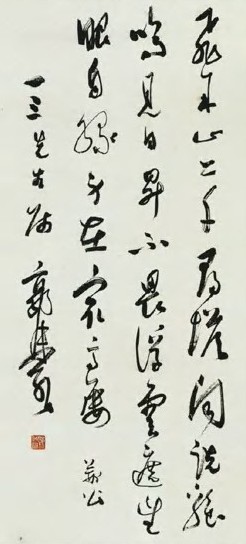 飛來山上千尋塔聞說雞
鳴見日昇不畏浮雲遮望
眼自緣身在最高層 荊公
一三先生屬